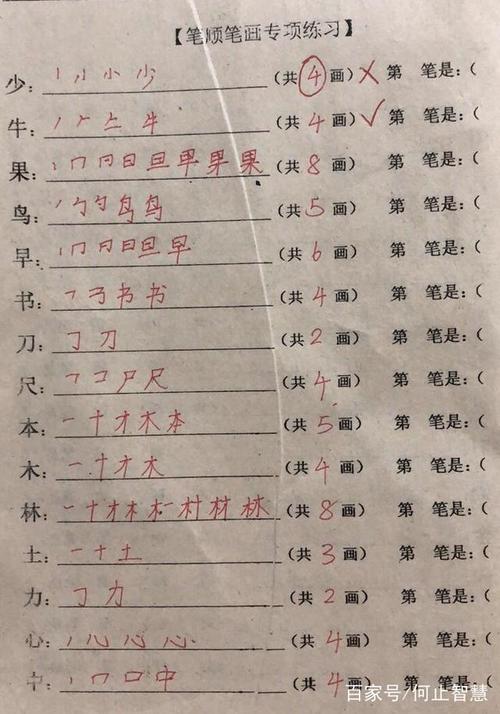 【笔顺笔画专项练习】
少：丨 小 少 （共 4 画）✗ 第 笔是：（
牛：丿 𠂉 牛 （共 4 画）✓ 第 笔是：（
果：丨 冂 日 旦 早 果 果 （共 8 画） 第 笔是：（
鸟：丿 勹 鸟 鸟 （共 5 画） 第 笔是：（
早：丨 冂 日 旦 早 （共 6 画） 第 笔是：（
书：书 书 （共 4 画） 第 笔是：（
刀：刀 （共 2 画） 第 笔是：（
尺：コ 尸 尺 （共 4 画） 第 笔是：（
本：一 十 才 木 本 （共 5 画） 第 笔是：（
木：一 十 才 木 （共 4 画） 第 笔是：（
林：一 十 才 木 村 材 林 （共 8 画） 第 笔是：（
土：一 十 土 （共 3 画） 第 笔是：（
力：力 （共 2 画） 第 笔是：（
心：心 心 （共 4 画） 第 笔是：（
中：丨 冂 口 中 （共 4 画） 第 笔是：（
百家号/何止智慧